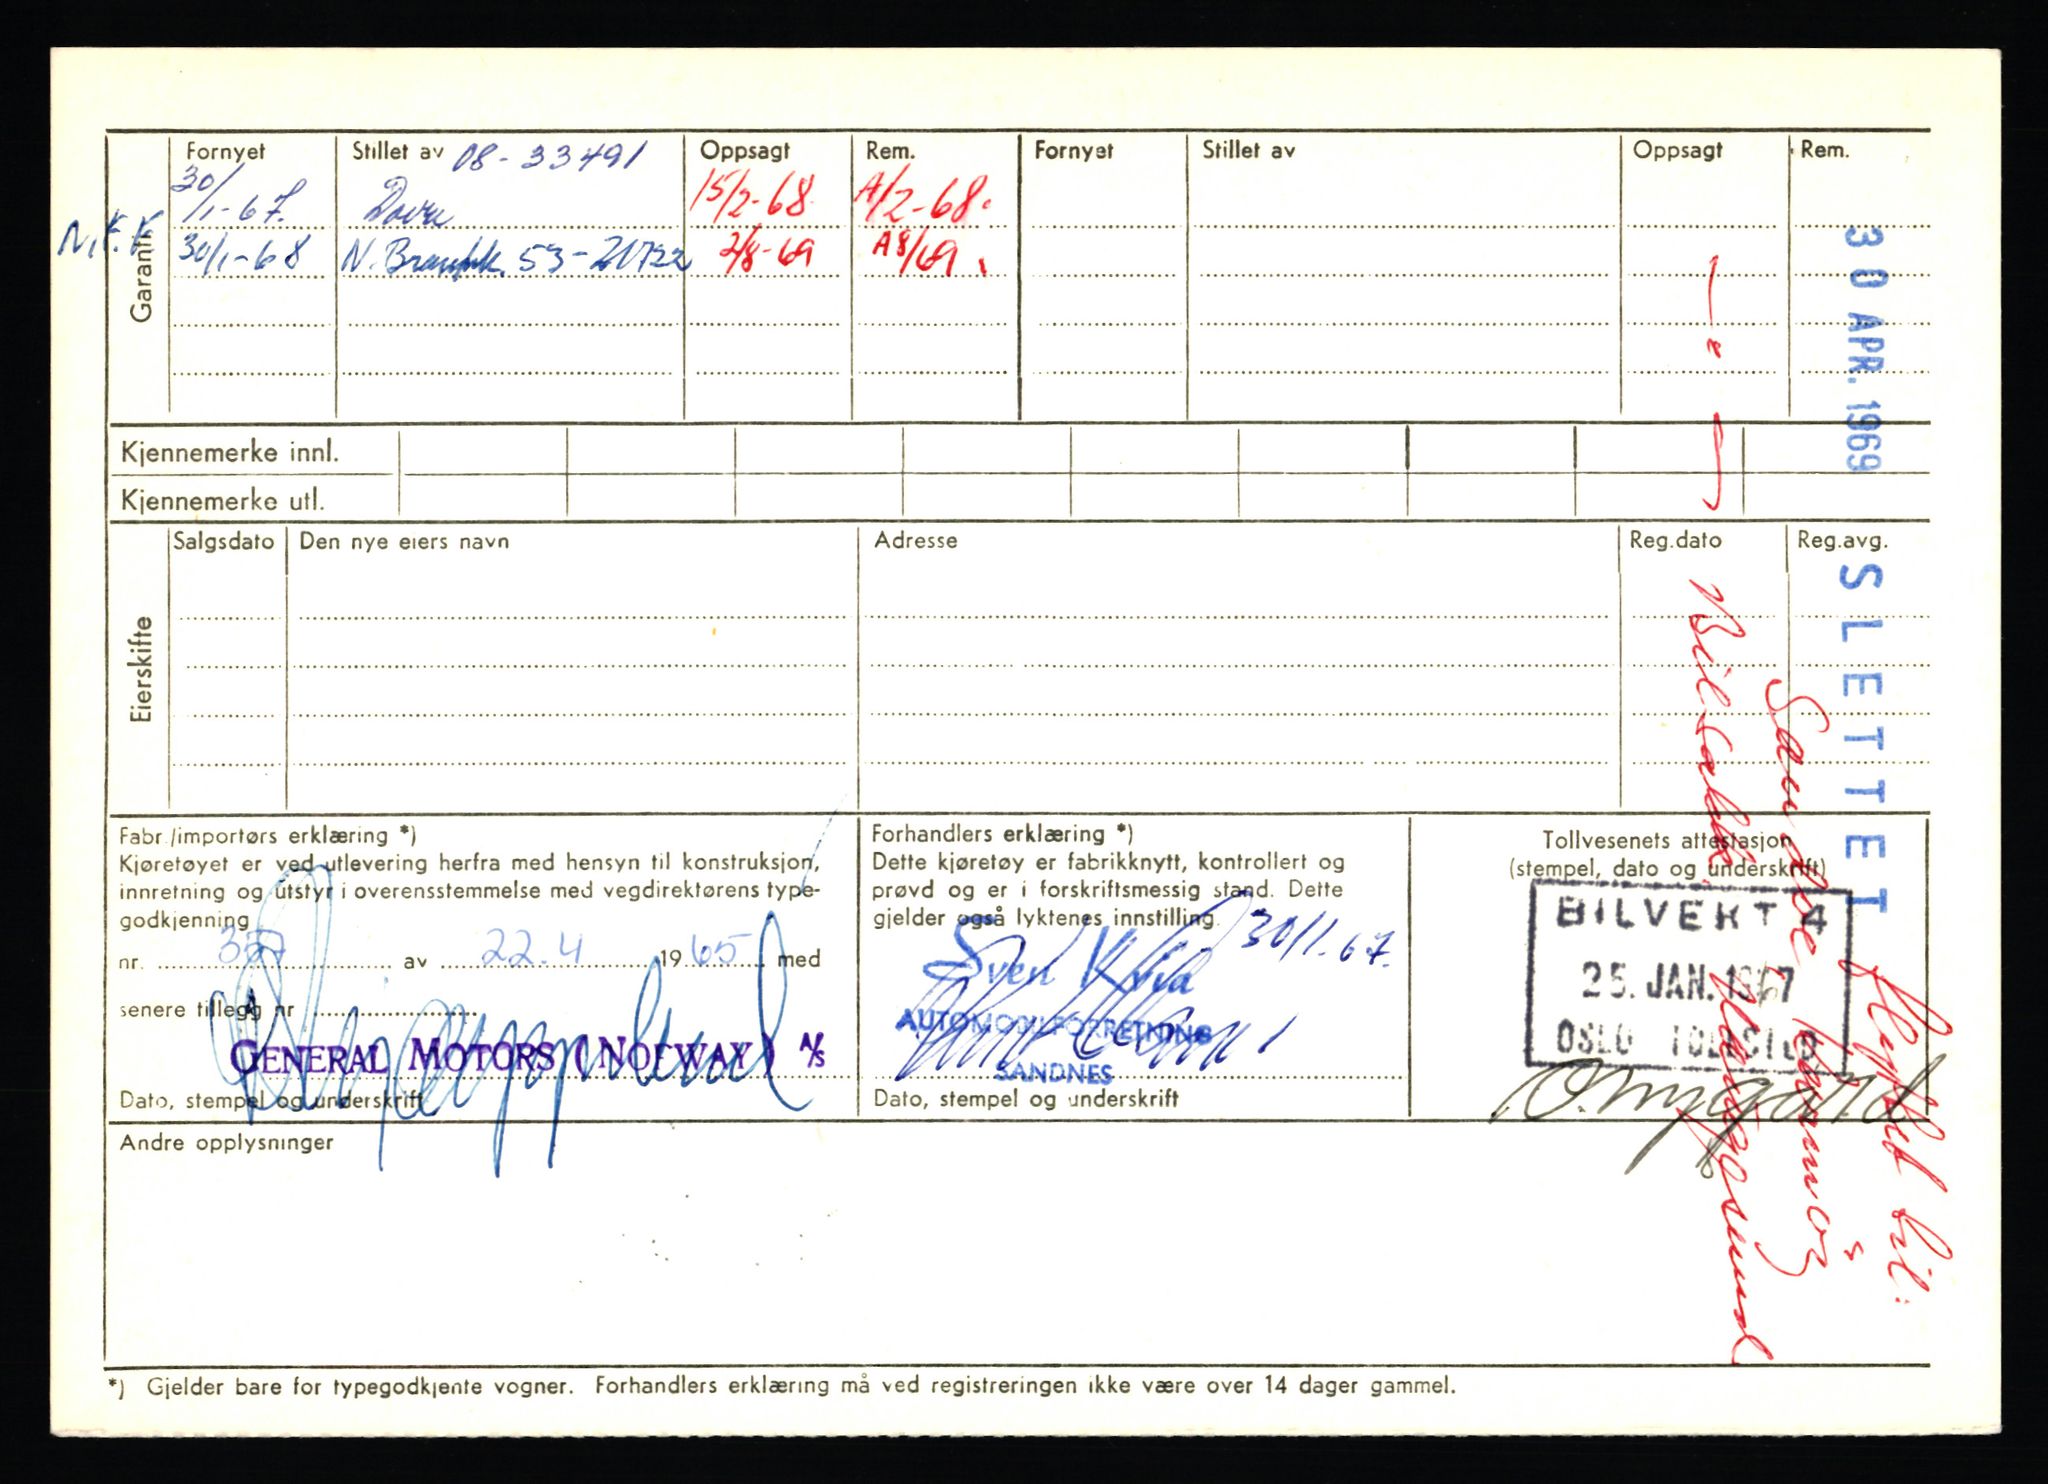 Garanti
Fornyet Stillet av 08-33491 Oppsagt Rem. Fornyet Stillet av Oppsagt Rem.
30/1-67. 15/2-68 A/2-68.
30/1-68 53- 2/8-69 A8/69
30 APR. 1969
Kjennemerke innl.
Kjennemerke utl.
Eierskifte
Salgsdato Den nye eiers navn Adresse Reg.dato Reg.avg.
SLETTET
Fabr./importørs erklæring *)
Kjøretøyet er ved utlevering herfra med hensyn til konstruksjon,
innretning og utstyr i overensstemmelse med vegdirektørens type-
godkjenning
nr. av 22.4 1965 med
senere tillegg nr
GENERAL MOTORS (NORWAY) A/S
Dato, stempel og underskrift
Forhandlers erklæring *)
Dette kjøretøy er fabrikknytt, kontrollert og
prøvd og er i forskriftsmessig stand. Dette
gjelder også lyktenes innstilling.
30/1.67.
Sven
AUTOMOBILFORRETNING
SANDNES
Dato, stempel og underskrift
Tollvesenets attestasjon
(stempel, dato og underskrift)
BILVERT 4
25. JAN. 1967
OSLO TOLLSTED
bil:
Andre opplysninger
*) Gjelder bare for typegodkjente vogner. Forhandlers erklæring må ved registreringen ikke være over 14 dager gammel.